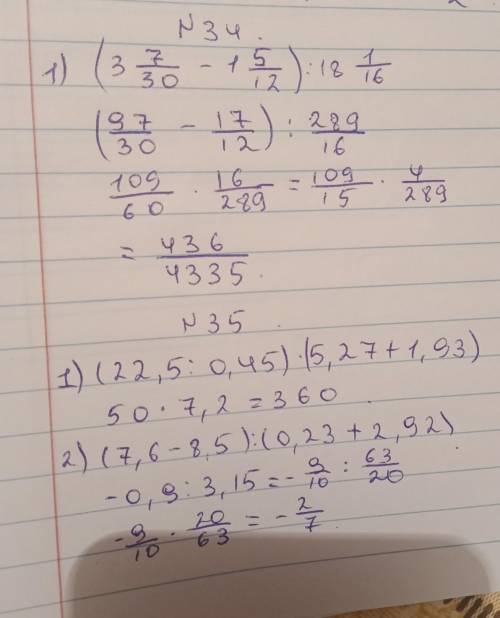 N34.
1) (3 7/30 - 1 5/12) : 18 1/16
(97/30 - 17/12) : 289/16
109/60 · 16/289 = 109/15 · 4/289
= 436/4335.
N35.
1) (22,5 : 0,45) · (5,27 + 1,93)
50 · 7,2 = 360.
2) (7,6 - 8,5) : (0,23 + 2,92)
-0,9 : 3,15 = -9/10 : 63/20
-9/10 · 20/63 = -2/7.